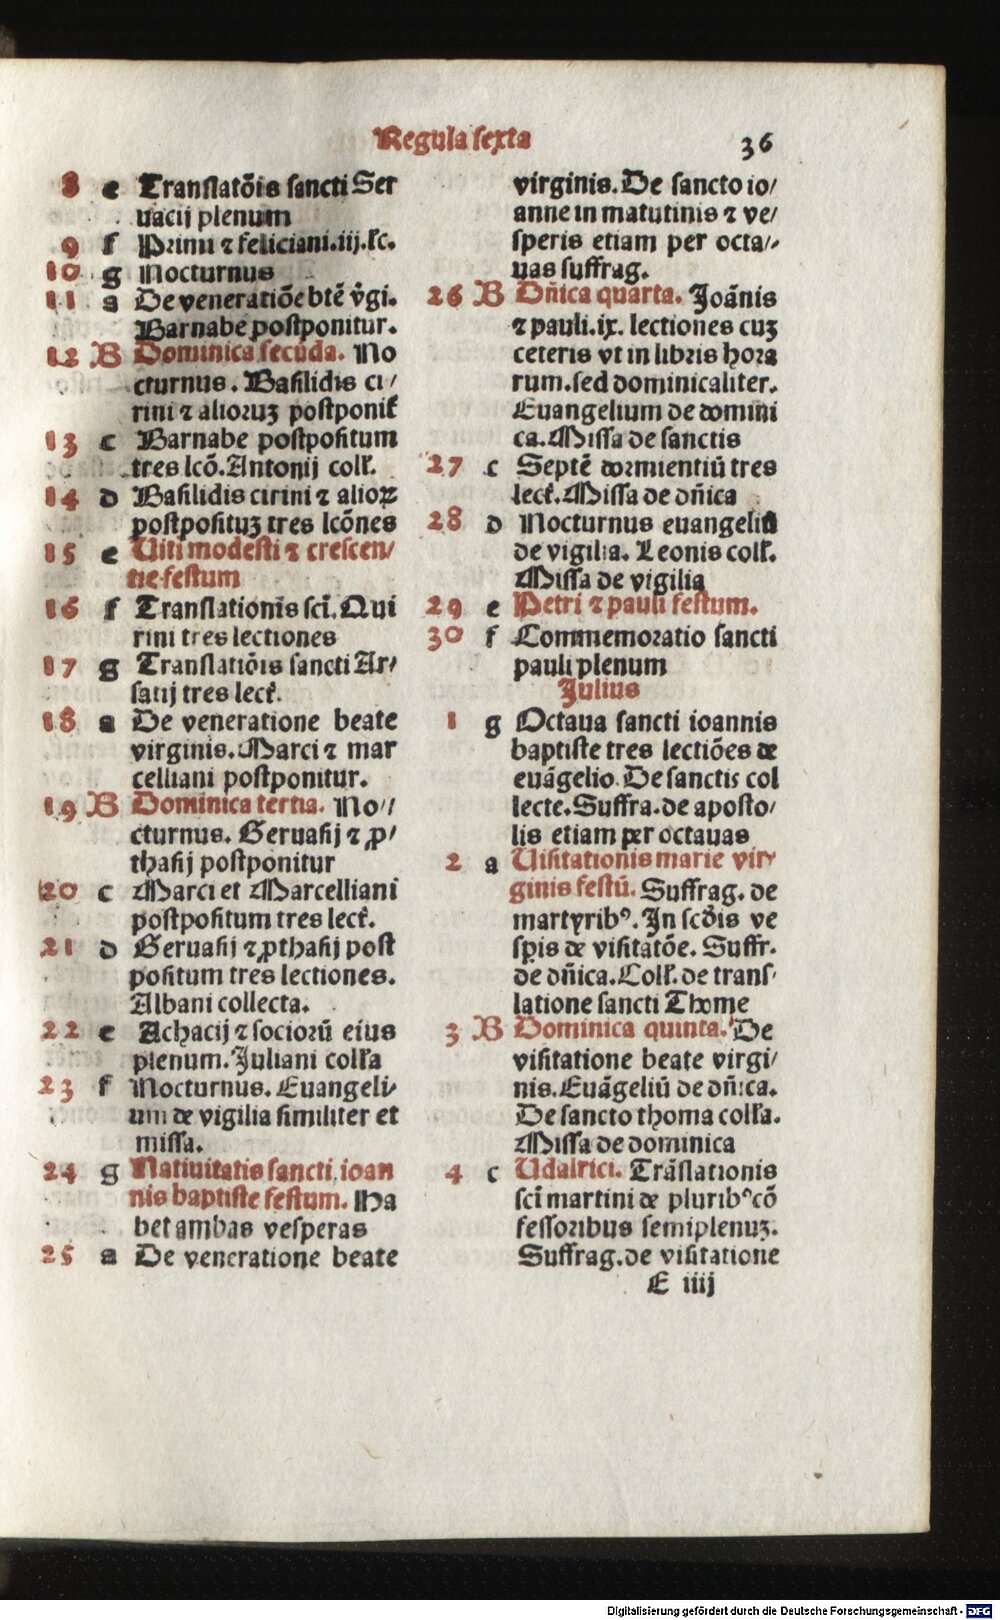 Regula sexta
36
8 e Translatōis sancti Ser
uacij plenum
9 f Primi ⁊ feliciani.iij.lc̄.
10 g Nocturnus
11 a De veneratiōe btē v̄gi.
Barnabe postponitur.
12 B Dominica secūda. No
cturnus. Basilidis ci/
rini ⁊ alioruꝫ postponit̄
13 c Barnabe postpositum
tres lcō. Antonij coll̄.
14 d Basilidis cirini ⁊ alioꝝ
postposituꝫ tres lcōnes
15 e Uiti modesti ⁊ crescen/
tie festum
16 f Translationis scī. Qui
rini tres lectiones
17 g Translatiōis sancti Ar/
satij tres lect̄.
18 a De veneratione beate
virginis. Marci ⁊ mar
celliani postponitur.
19 B Dominica tertia. No//
cturnus. Geruasij ⁊ ꝓ/
thasij postponitur
20 c Marci et Marcelliani
postpositum tres lect̄.
21 d Geruasij ⁊ ꝓthasij post
positum tres lectiones.
Albani collecta.
22 e Achacij ⁊ sociorū eius
plenum. Juliani coll̄a
23 f Nocturnus. Euangeli/
um de vigilia similiter et
missa.
24 g Natiuitatis sancti ioan
nis baptiste festum. Ha
bet ambas vesperas
25 a De veneratione beate
virginis. De sancto io/
anne in matutinis ⁊ ve/
speris etiam per octa//
uas suffrag.
26 B Dn̄ica quarta. Joānis
⁊ pauli. ix. lectiones cuꝫ
ceteris vt in libris hora
rum. sed dominicaliter.
Euangelium de domini
ca. Missa de sanctis
27 c Septē dormientiū tres
lect̄. Missa de dn̄ica
28 d Nocturnus euangeliū
de vigilia. Leonis coll̄.
Missa de vigilia
29 e Petri ⁊ pauli festum.
30 f Commemoratio sancti
pauli plenum
Julius
1 g Octaua sancti ioannis
baptiste tres lectiōes de
euāgelio. De sanctis col
lecte. Suffra. de aposto/
lis etiam per octauas
2 a Uisitationis marie vir/
ginis festū. Suffrag. de
martyribꝰ. In scd̄is ve
sp̄is de visitatōe. Suffr.
de dn̄ica. Coll̄. de trans/
latione sancti Thome
3 B Dominica quinta. De
visitatione beate virgi/
nis. Euāgeliū de dn̄ica.
De sancto thoma coll̄a.
Missa de dominica
4 c Udalrici. Trāslationis
scī martini de pluribꝰ cō
fessoribus semiplenuꝫ.
Suffrag. de visitatione
E iiij
Digitalisierung gefördert durch die Deutsche Forschungsgemeinschaft - DFG